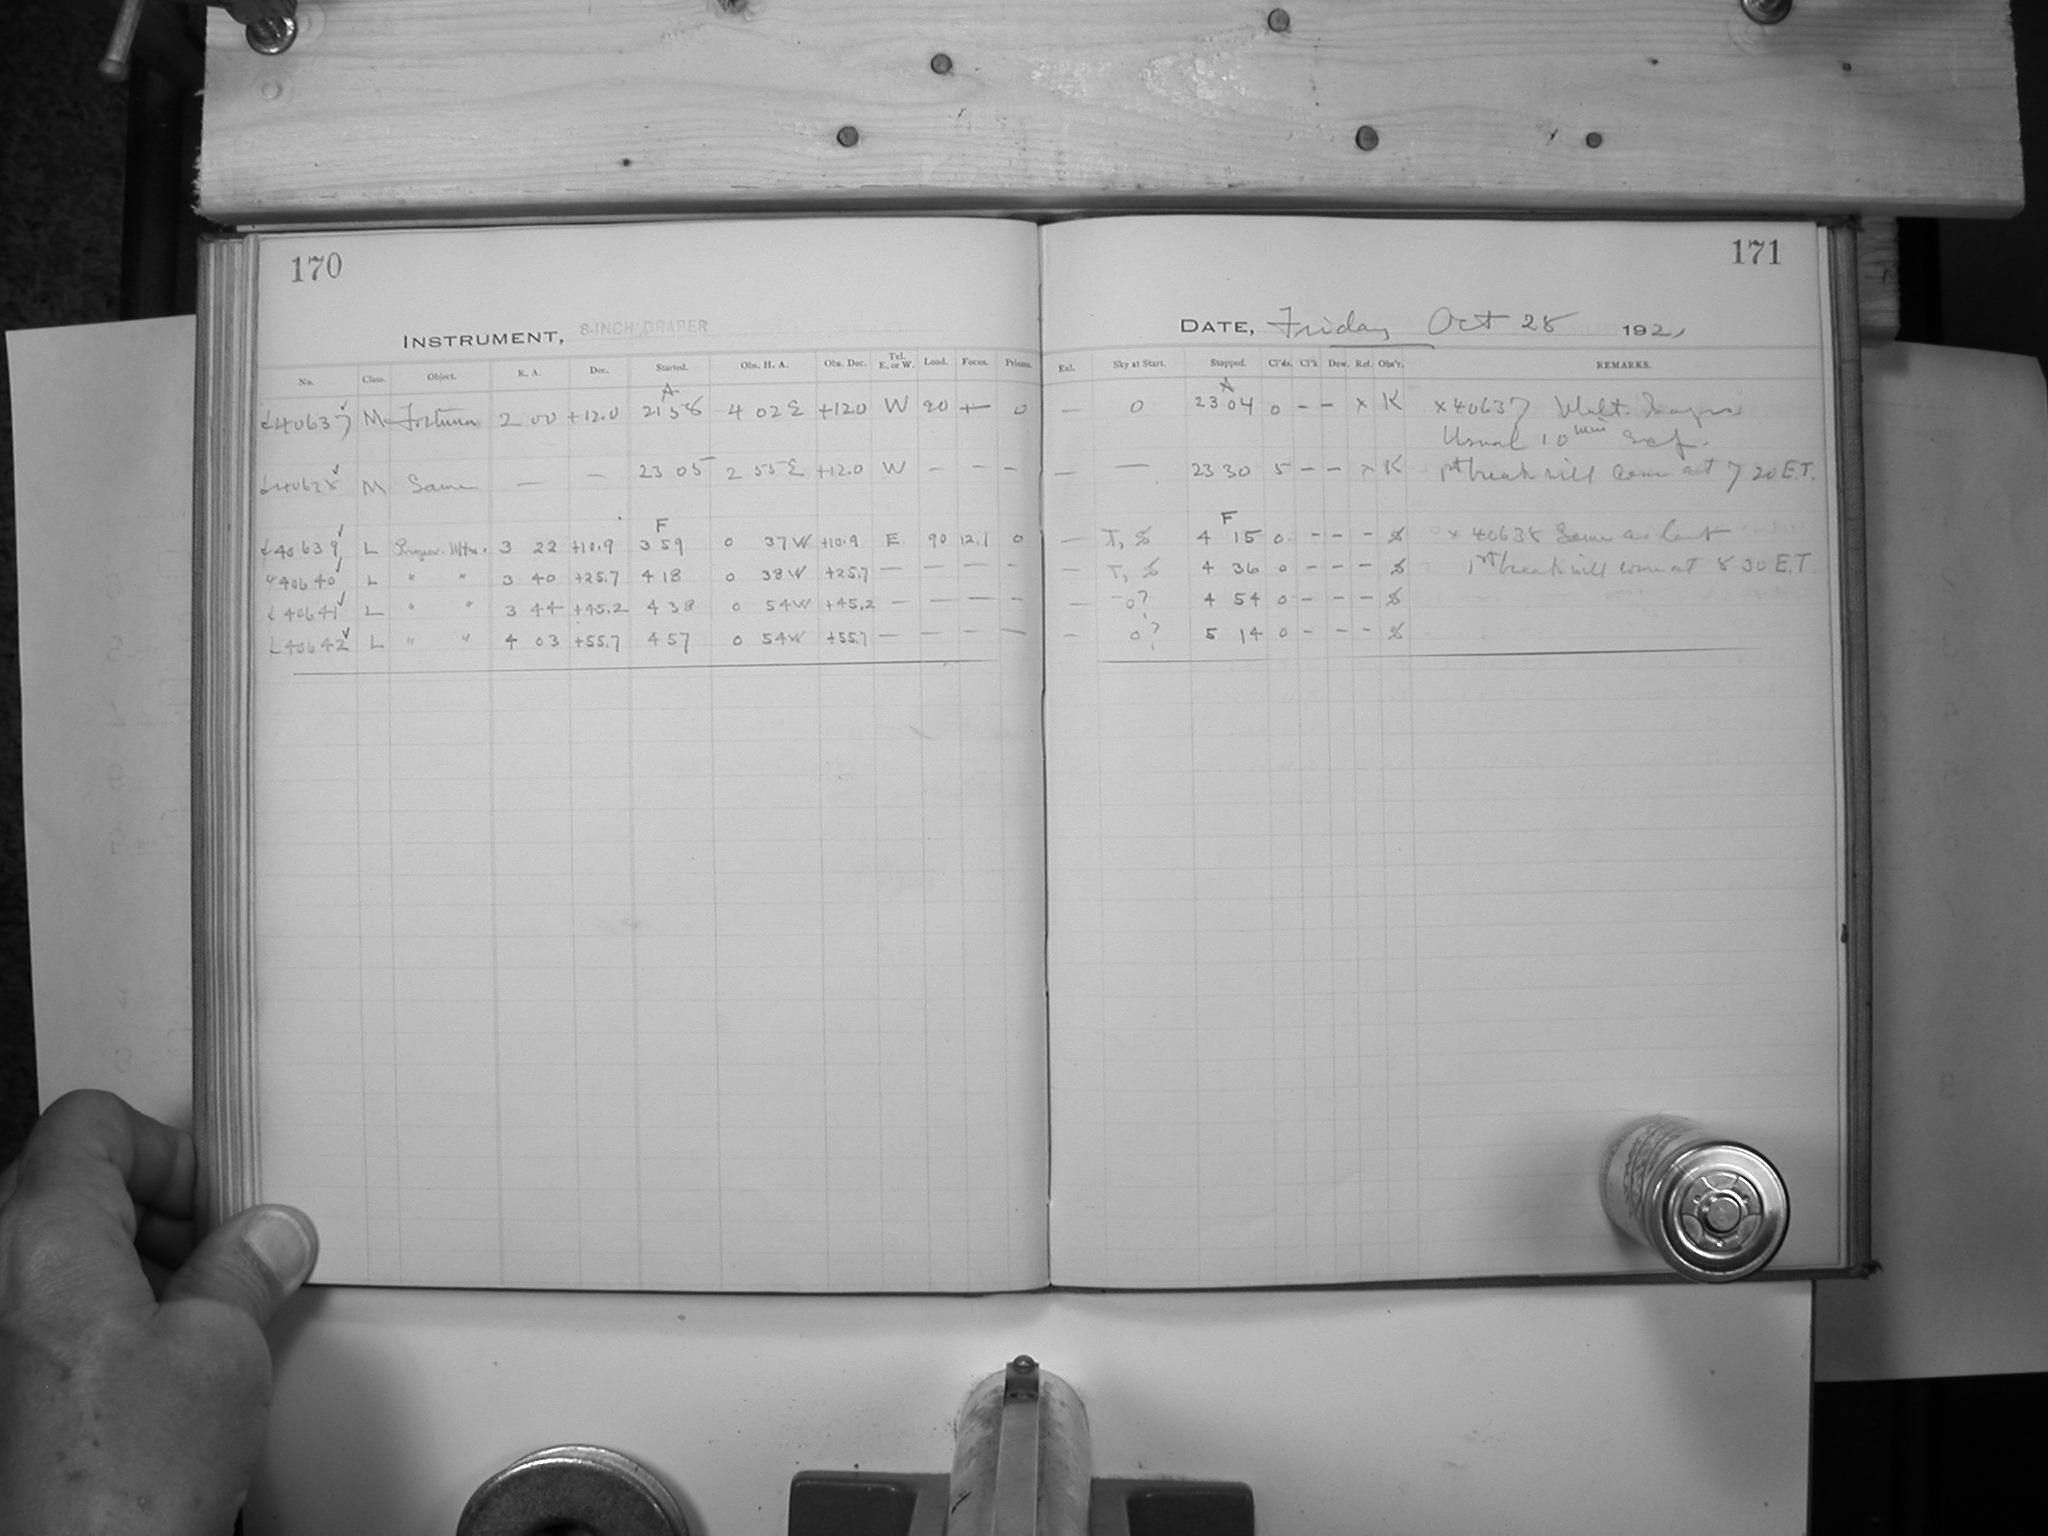 170
171
INSTRUMENT, 8-INCH DRAPER
DATE, Friday Oct 28 1921
No. Class. Object. R. A. Dec. Started. Obs. H. A. Obs. Dec. Tel. E. or W. Load. Focus. Prisms.
Exl. Sky at Start. Stopped. Cl'ds. Cl'k Dew. Ref. Obs'r. REMARKS.
A
A
40637 M Fortuna 2 00 +12.0 21 58 4 02 E +12.0 W 90 + 0
— 0 23 04 0 - - x K x 40637 Mult. Images
Usual 10 min
40638 M Same — — 23 05 2 55 E +12.0 W - - -
— — 23 30 5 - - x K 1st break will come at 7 20 E.T.
F
F
40639 L 3 22 +10.9 3 59 0 37 W +10.9 E 90 12.1 0
— T, S 4 15 0 - - - S x 40638 Same as last
40640 L " " 3 40 +25.7 4 18 0 38 W +25.7 — — — —
— T, S 4 36 0 - - - S 1st break will come at 8 30 E.T.
40641 L " " 3 44 +45.2 4 38 0 54 W +45.2 — — — —
— 0? 4 54 0 - - - S
40642 L " " 4 03 +55.7 4 57 0 54 W +55.7 — — — —
— 0? 5 14 0 - - - S